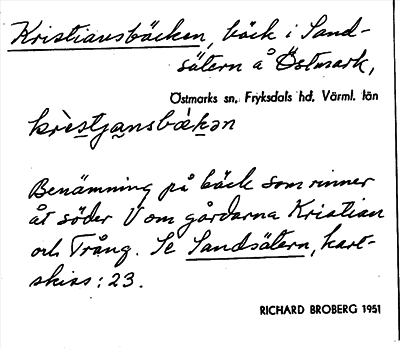 Kristiansbäcken, bäck i Sand-
sätern å Östmark,
Östmarks sn, Fryksdals hd, Värml. län
krèstjansbäkən
Benämning på bäck som rinner
åt söder V om gårdarna Kristian
och Trång. Se Sandsätern, kart-
skiss: 23.
RICHARD BROBERG 1951